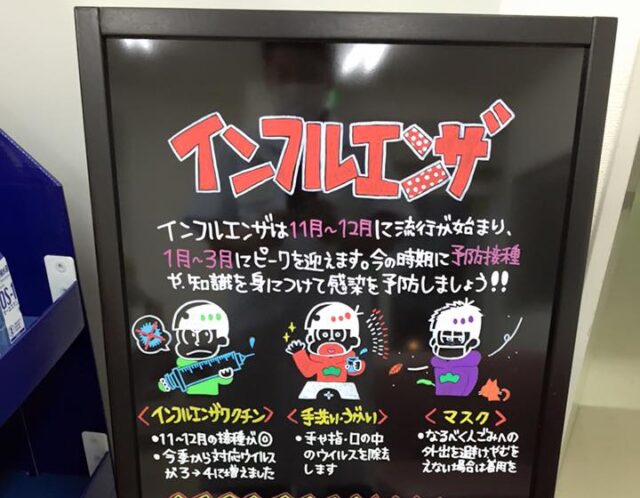 インフルエンザ
インフルエンザは11月~12月に流行が始まり、
1月~3月にピークを迎えます。今の時期に予防接種
や、知識を身につけて感染を予防しましょう!!
<インフルエンザワクチン>
・11~12月の接種が◎
・今季から対応ウイルス
が3→4に増えました
<手洗い・うがい>
・手や指・口の中
のウイルスを除去
します
<マスク>
・なるべく人ごみへの
外出を避け、やむを
えない場合は着用を